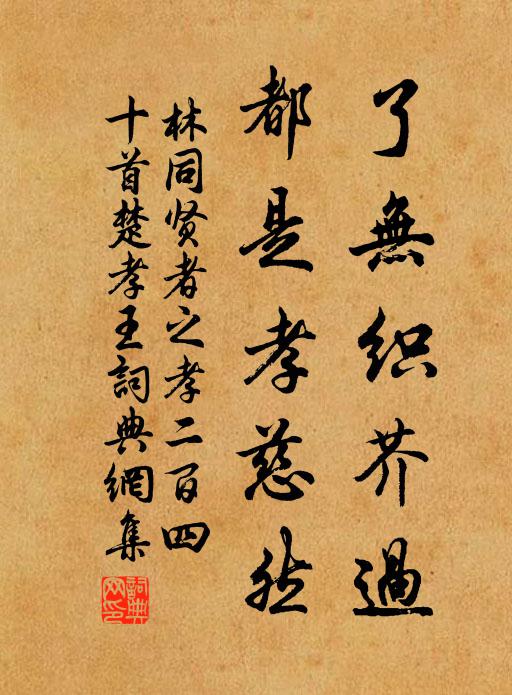 了無织芥過
都是孝慈然
林同贤者之孝二百四
十首楚孝王詞典網集
詞典网印